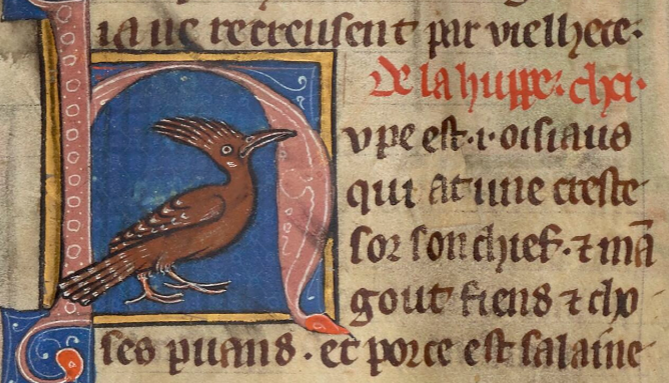 ia ne recreusent par vielhece.
De la huppe. chei.
vpe est .i. oisiaus
qui at une creste
sor son chief. ⁊ mā
gout fiens ⁊ cho
ses puans. et porce est salaine